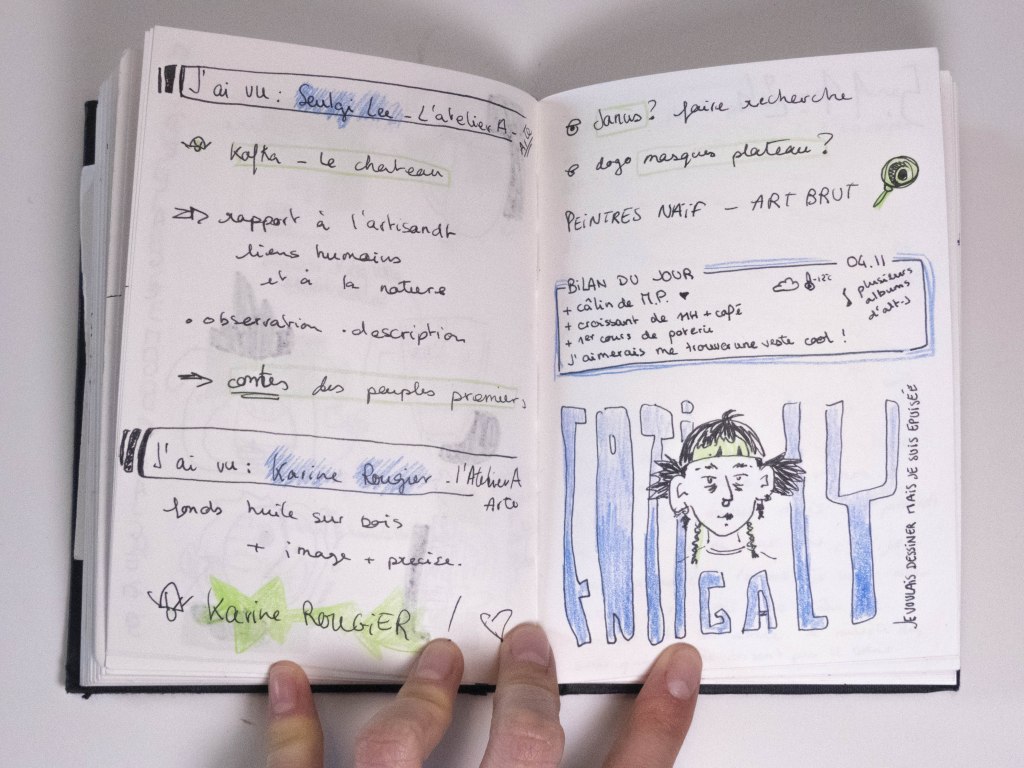 J'ai vu : Seulgi Lee - L'atelier A -
Kafka - le chateau
rapport à l'artisanat
liens humains
et à la nature
• observation • description
→ contes des peuples premiers
J'ai vu : Karine Rougier - l'Atelier A
Arte
fonds huile sur bois
+ image + précise.
Karine ROUGIER !
Janus ? faire recherche
dogo masques plateau ?
PEINTRES NAÏF - ART BRUT
BILAN DU JOUR
04.11
+ câlin de M.P. ♥
12°C
plusieurs
albums
d'alt-J
+ croissant de MH + café
+ 1er cours de poterie
J'aimerais me trouver une veste cool !
GALY
JE VOULAIS DESSINER MAIS JE SUIS EPUISÉE